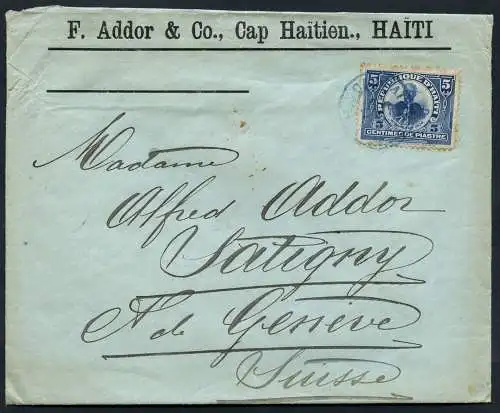 F. Addor & Co., Cap Haïtien., HAÏTI
5 5
REPUBLIQUE D'HAITI
5 5
CENTIMES DE PIASTRE
Madame
Alfred Addor
Satigny
Ct de Genève
Suisse